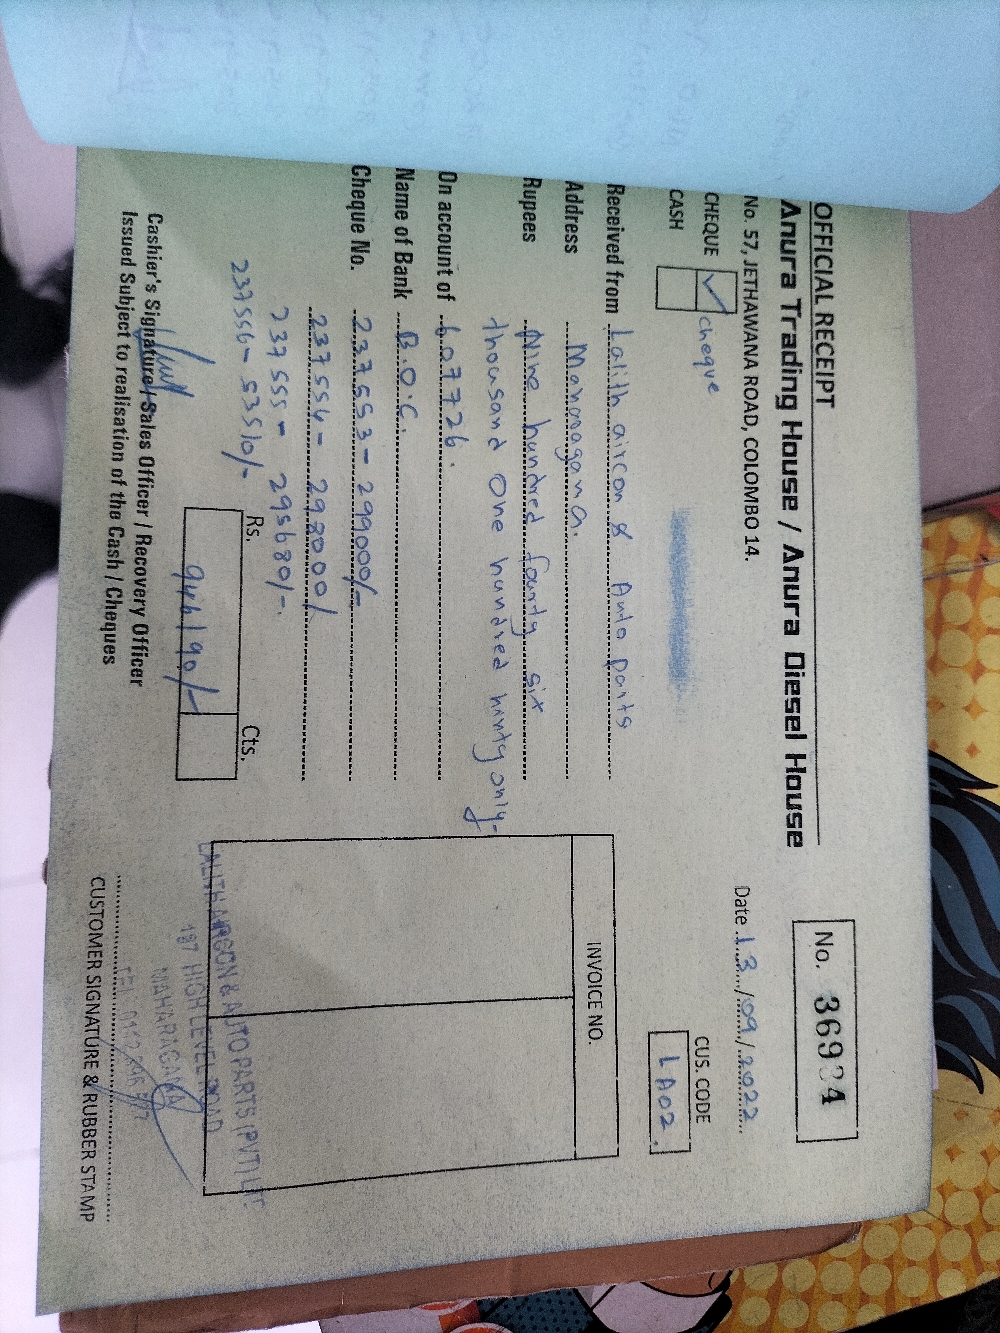 OFFICIAL RECEIPT
Anura Trading House / Anura Diesel House
No. 57, JETHAWANA ROAD, COLOMBO 14.
No. 36934
Date 13/09/2022
CHEQUE ✓ cheque
CASH
CUS. CODE
LA02
Received from Lalith aircon & Auto parts
Address Maharagana.
Rupees Nine hundred founty six
thousand one hundred ninty only
On account of 607726.
Name of Bank B.O.C.
Cheque No. 237553 - 299000/-
237554 - 298000/
237555 - 295680/-.
237556 - 53510/-
INVOICE NO.
Rs. Cts.
946190/-
Cashier's Signature / Sales Officer / Recovery Officer
Issued Subject to realisation of the Cash / Cheques
LALITH AIRCON & AUTO PARTS (PVT) LT
187 HIGH LEVEL ROAD
MAHARAGAMA
CUSTOMER SIGNATURE & RUBBER STAMP